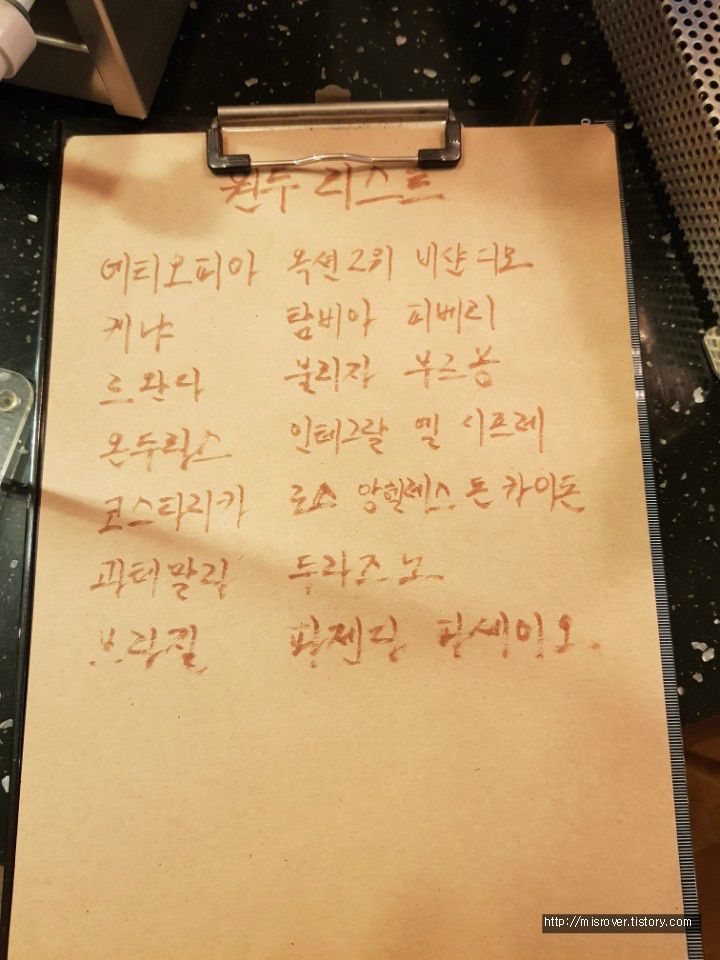 원두 리스트
에티오피아 옥션2위 비샨디모
케냐 탐비아 피베리
르완다 불리자 부르봉
온두라스 인테그랄 엘 시프레
코스타리카 로스 앙헬레스 돈 카이돈
과테말라 두라즈노
브라질 파젠다 파세이오
http://misrover.tistory.com